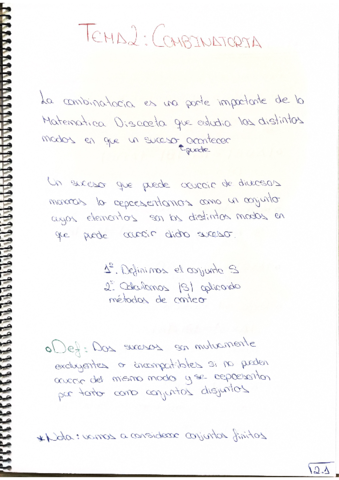 TEMA 2: COMBINATORIA
La combinatoria es una parte importante de la
Matemática Discreta que estudia los distintos
modos en que un suceso acontecer
puede
Un suceso que puede ocurrir de diversas
maneras lo representamos como un conjunto
cuyos elementos son los distintos modos en
que puede ocurrir dicho suceso.
1º. Definimos el conjunto S
2º. Calculamos |S| aplicando
métodos de conteo
Def: Dos sucesos son mutuamente
excluyentes o incompatibles si no pueden
ocurrir del mismo modo y se representan
por tanto como conjuntos disjuntos
* Nota: vamos a considerar conjuntos finitos
T2.1